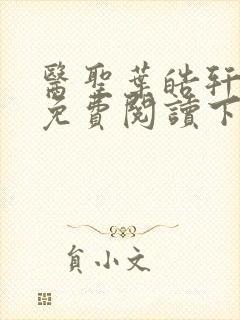 醫聖葉皓軒
免費閱讀下
貟小文